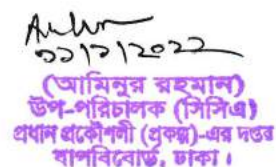 ১১/১/২০২২
(আমিনুর রহমান)
উপ-পরিচালক (সিসিএ)
প্রধান প্রকৌশলী (প্রকল্প)-এর দপ্তর
বাপবিবোর্ড, ঢাকা।